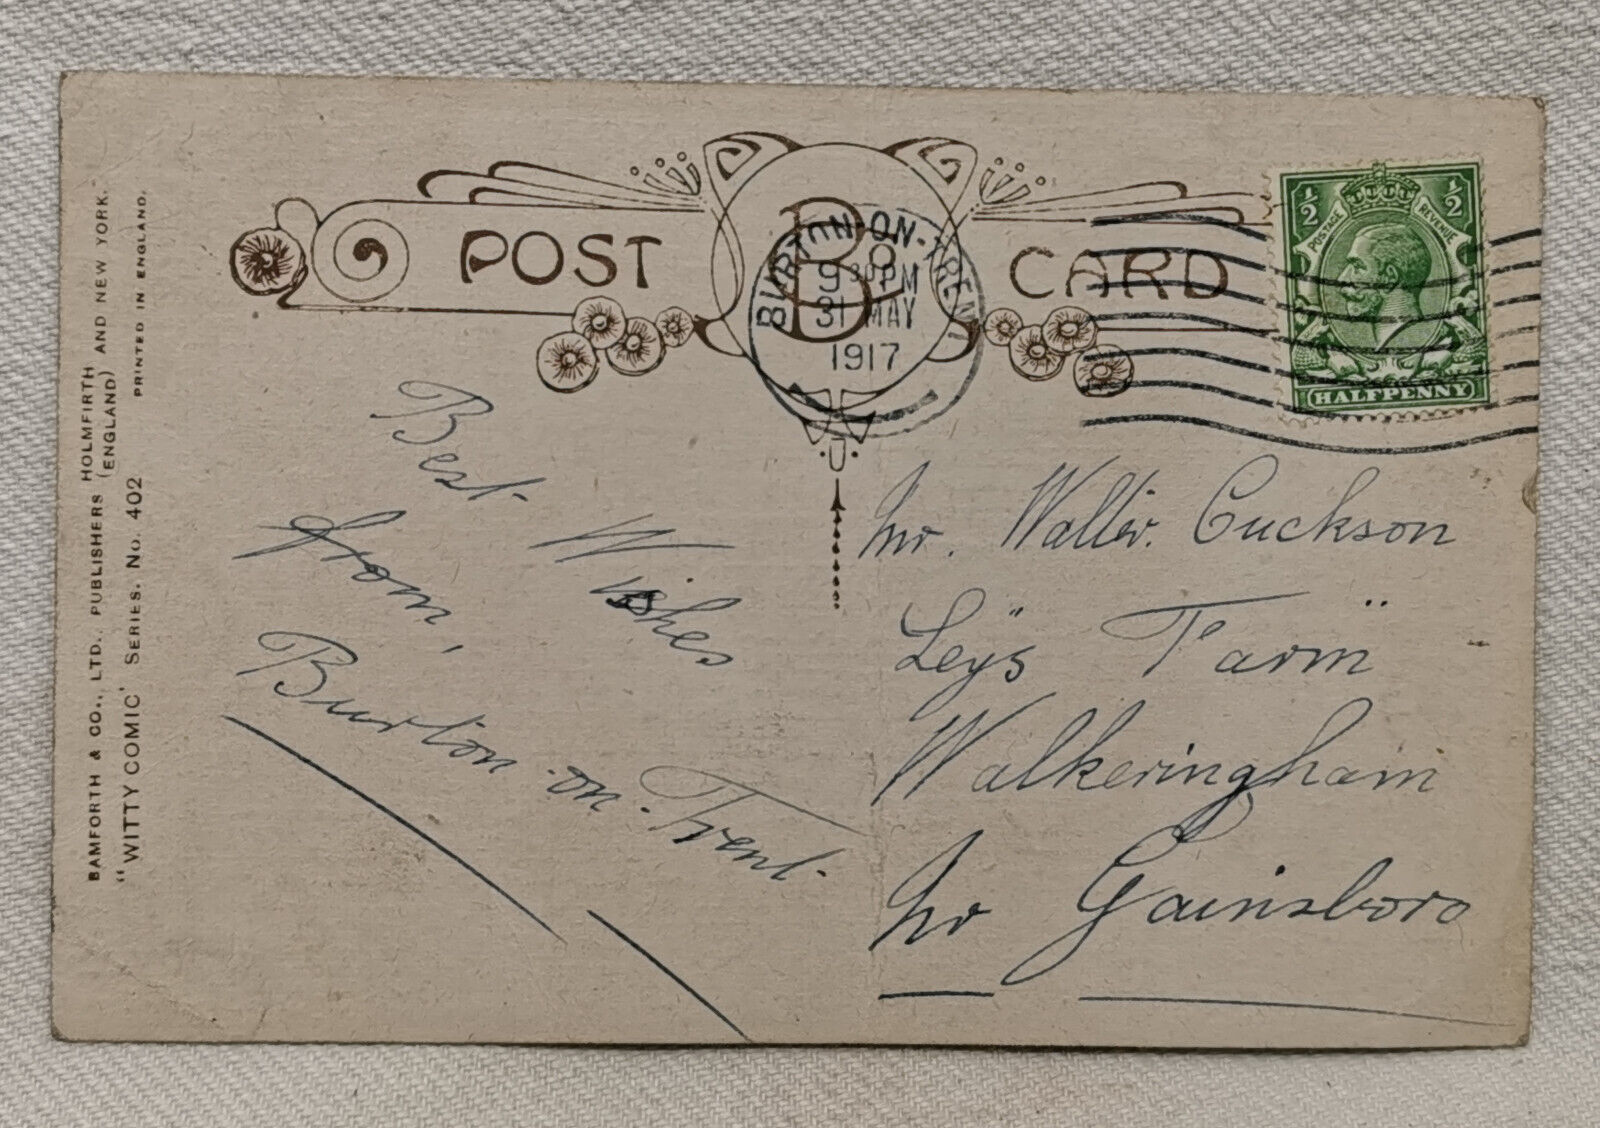 BAMFORTH & CO., LTD., PUBLISHERS HOLMFIRTH (ENGLAND) AND NEW YORK.
"WITTY COMIC" SERIES. No. 402 PRINTED IN ENGLAND.
POST CARD
B & Co
BURTON-ON-TRENT
9 30 PM
31 MAY
1917
½ ½
POSTAGE REVENUE
HALFPENNY
Best Wishes
from,
Burton-on-Trent.
Mr. Walter. Cuckson
Ley's Farm
Walkeringham
Nr Gainsboro